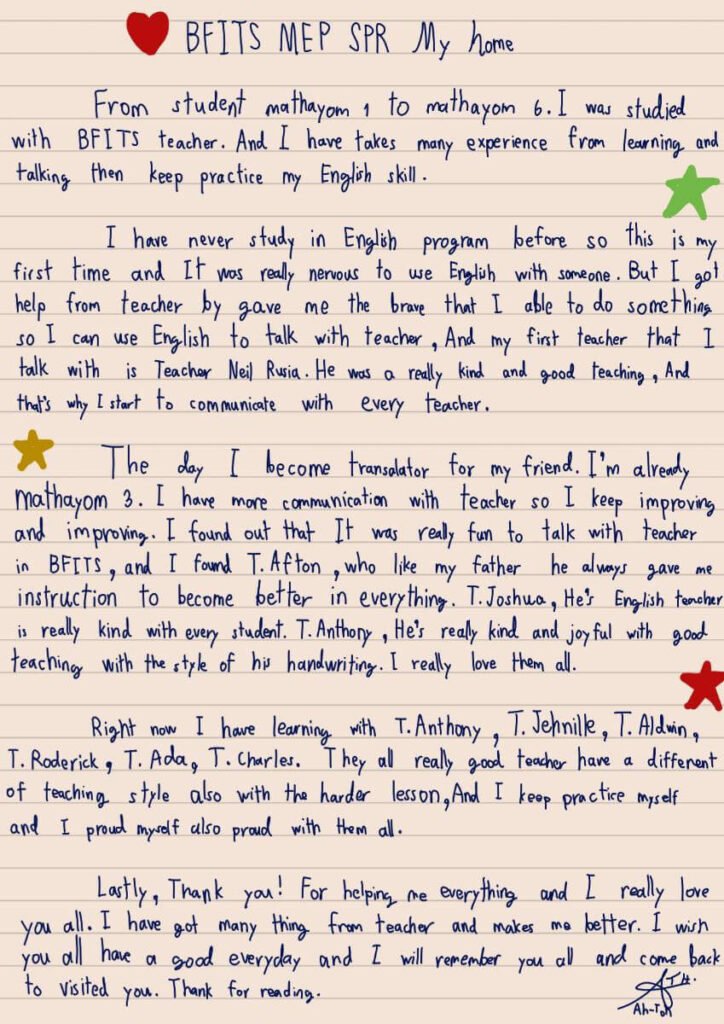 BFITS MEP SPR My home
From student mathayom 1 to mathayom 6. I was studied
with BFITS teacher. And I have takes many experience from learning and
talking then keep practice my English skill.
I have never study in English program before so this is my
first time and It was really nervous to use English with someone. But I got
help from teacher by gave me the brave that I able to do something
so I can use English to talk with teacher, And my first teacher that I
talk with is Teacher Neil Rusia. He was a really kind and good teaching, And
that's why I start to communicate with every teacher.
The day I become transalator for my friend. I'm already
mathayom 3. I have more communication with teacher so I keep improving
and improving. I found out that It was really fun to talk with teacher
in BFITS, and I found T. Afton, who like my father he always gave me
instruction to become better in everything. T. Joshua, He's English teacher
is really kind with every student. T. Anthony, He's really kind and joyful with good
teaching with the style of his handwriting. I really love them all.
Right now I have learning with T. Anthony, T. Jehnille, T. Aldwin,
T. Roderick, T. Ada, T. Charles. They all really good teacher have a different
of teaching style also with the harder lesson, And I keep practice myself
and I proud myself also proud with them all.
Lastly, Thank you! For helping me everything and I really love
you all. I have got many thing from teacher and makes me better. I wish
you all have a good everyday and I will remember you all and come back
to visited you. Thank for reading.